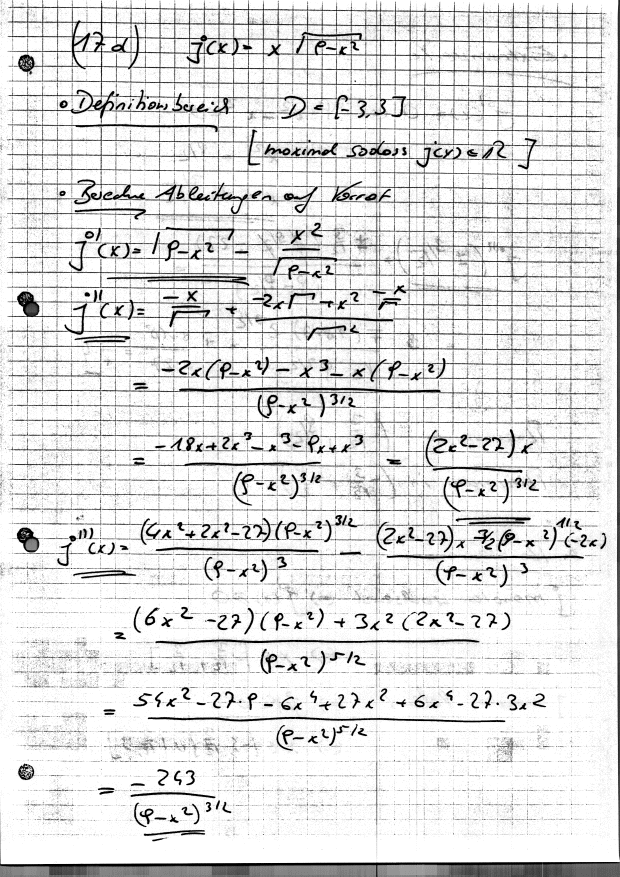 (17 d) j(x) = x √(9-x²)
• Definitionsbereich D = [-3,3]
[maximal sodass j(x) ∈ ℝ]
• Berechne Ableitungen auf Vorrat
j'(x) = √(9-x²) - x²/√(9-x²)
j''(x) = -x/√ + (-2x√ + x² (-x)/√)/√²
= (-2x(9-x²) - x³ - x(9-x²))/(9-x²)^(3/2)
= (-18x+2x³-x³-9x+x³)/(9-x²)^(3/2) = ((2x²-27)x)/(9-x²)^(3/2)
j'''(x) = ((4x²+2x²-27)(9-x²)^(3/2))/(9-x²)³ - ((2x²-27)x 3/2 (9-x²)^(1/2) (-2x))/(9-x²)³
= ((6x²-27)(9-x²) + 3x²(2x²-27))/(9-x²)^(5/2)
= (54x²-27·9-6x⁴+27x²+6x⁴-27·3x²)/(9-x²)^(5/2)
= -243/(9-x²)^(3/2)